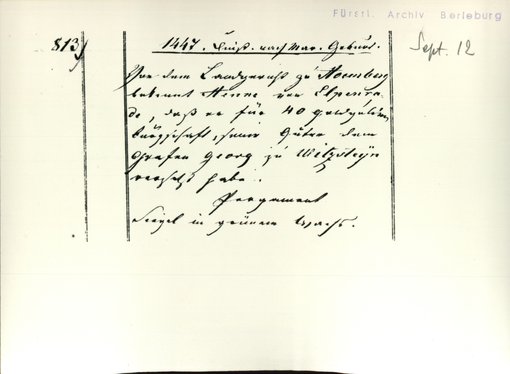 Fürstl. Archiv Berleburg
813)
1447. Dinst. nach Mar. Geburt.
Sept. 12
Vor dem Landgericht zu
bekennt Henne von Elpenro-
de, daß er für 40 goldgulden
bürgschaft, seine Güter dem
Grafen Georg zu Witzsteyn
versetzt habe.
Pergament
Siegel in grünem Wachs.